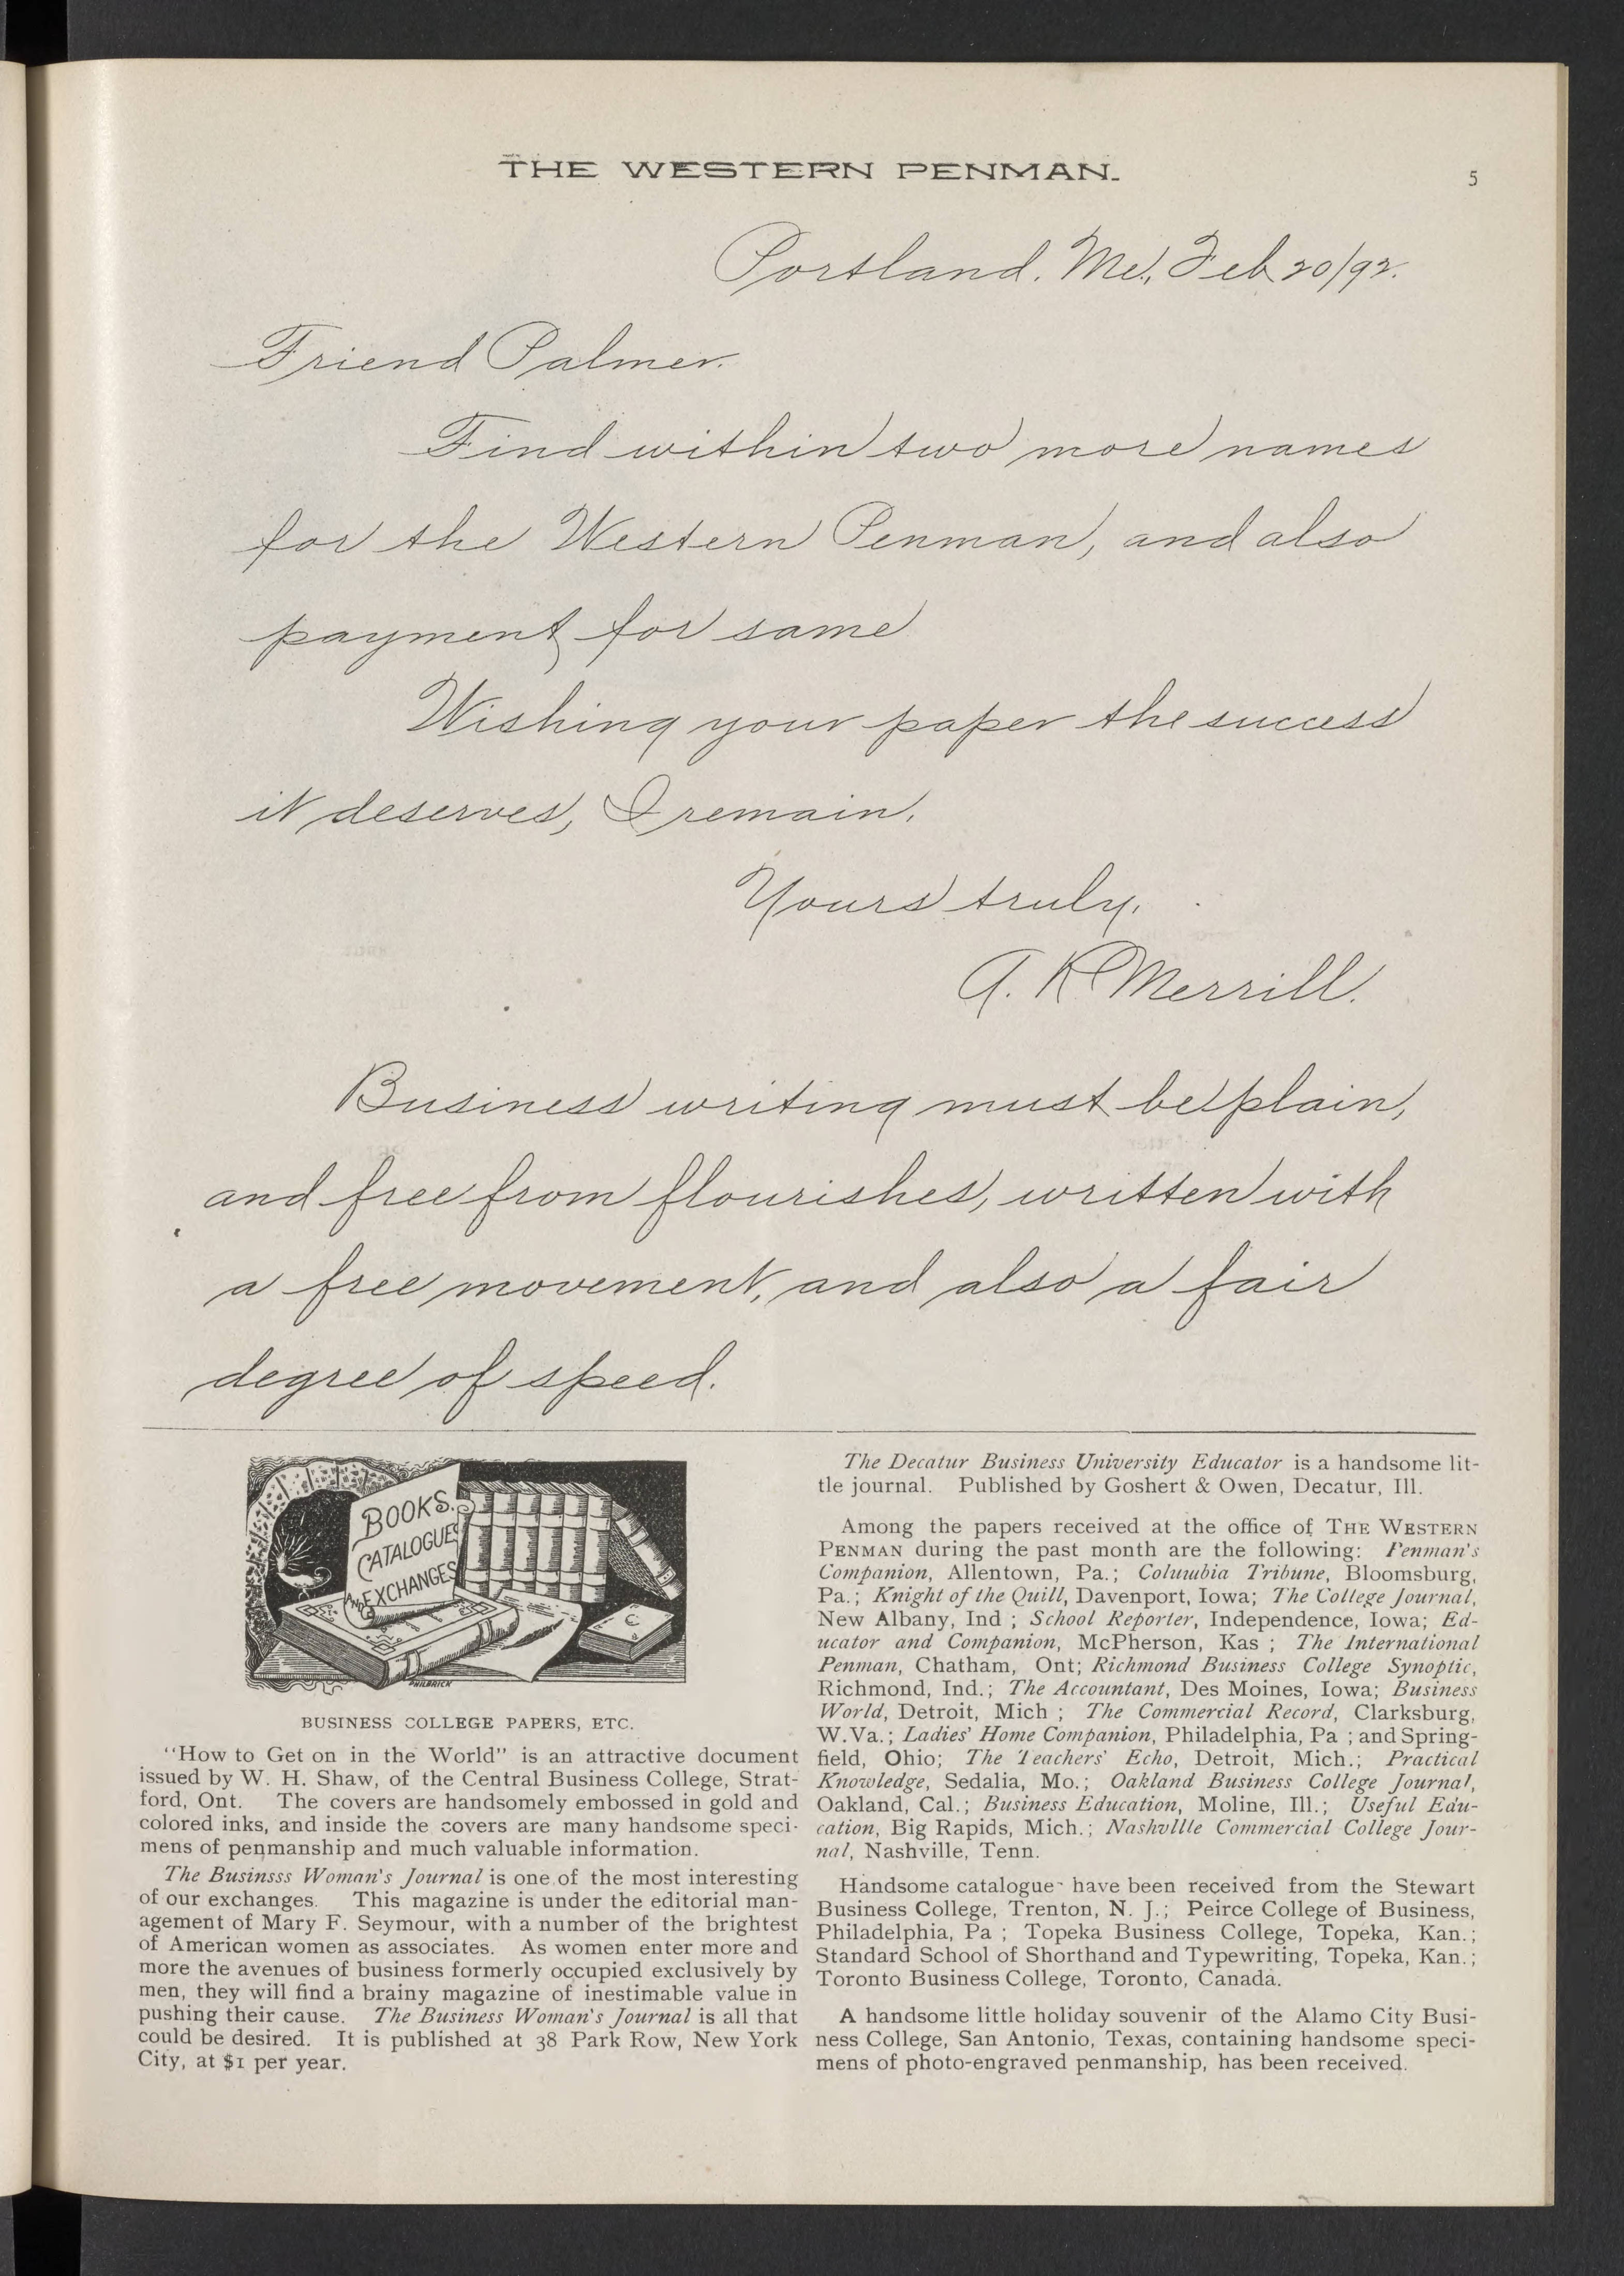 THE WESTERN PENMAN.
5
Portland, Me., Feb 20/92.
Friend Palmer.
Find within two more names
for the Western Penman, and also
payment for same
Wishing your paper the success
it deserves, I remain,
Yours truly,
A. K. Merrill.
Business writing must be plain,
and free from flourishes, written with
a free movement, and also a fair
degree of speed.
BOOKS.
CATALOGUES
AND EXCHANGES
PHILBRICK
BUSINESS COLLEGE PAPERS, ETC.
"How to Get on in the World" is an attractive document
issued by W. H. Shaw, of the Central Business College, Strat-
ford, Ont. The covers are handsomely embossed in gold and
colored inks, and inside the covers are many handsome speci-
mens of penmanship and much valuable information.
The Businsss Woman's Journal is one of the most interesting
of our exchanges. This magazine is under the editorial man-
agement of Mary F. Seymour, with a number of the brightest
of American women as associates. As women enter more and
more the avenues of business formerly occupied exclusively by
men, they will find a brainy magazine of inestimable value in
pushing their cause. The Business Woman's Journal is all that
could be desired. It is published at 38 Park Row, New York
City, at $1 per year.
The Decatur Business University Educator is a handsome lit-
tle journal. Published by Goshert & Owen, Decatur, Ill.
Among the papers received at the office of THE WESTERN
PENMAN during the past month are the following: Penman's
Companion, Allentown, Pa.; Columbia Tribune, Bloomsburg,
Pa.; Knight of the Quill, Davenport, Iowa; The College Journal,
New Albany, Ind ; School Reporter, Independence, Iowa; Ed-
ucator and Companion, McPherson, Kas ; The International
Penman, Chatham, Ont; Richmond Business College Synoptic,
Richmond, Ind.; The Accountant, Des Moines, Iowa; Business
World, Detroit, Mich ; The Commercial Record, Clarksburg,
W.Va.; Ladies' Home Companion, Philadelphia, Pa ; and Spring-
field, Ohio; The Teachers' Echo, Detroit, Mich.; Practical
Knowledge, Sedalia, Mo.; Oakland Business College Journal,
Oakland, Cal.; Business Education, Moline, Ill.; Useful Edu-
cation, Big Rapids, Mich.; Nashvllle Commercial College Jour-
nal, Nashville, Tenn.
Handsome catalogue- have been received from the Stewart
Business College, Trenton, N. J.; Peirce College of Business,
Philadelphia, Pa ; Topeka Business College, Topeka, Kan.;
Standard School of Shorthand and Typewriting, Topeka, Kan.;
Toronto Business College, Toronto, Canada.
A handsome little holiday souvenir of the Alamo City Busi-
ness College, San Antonio, Texas, containing handsome speci-
mens of photo-engraved penmanship, has been received.